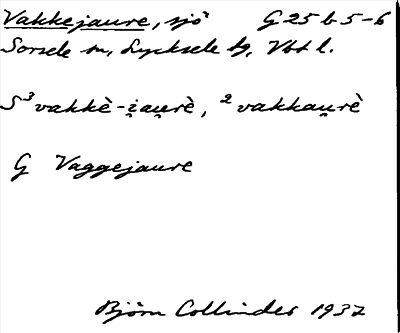 Vakkejaure, sjö G 25 b 5-6
Sorsele sn, Lycksele lg, Vbt l.
S ³vakkè-i̯au̯rè, ²vakkau̯rè
G Vaggejaure
Björn Collinder 1937